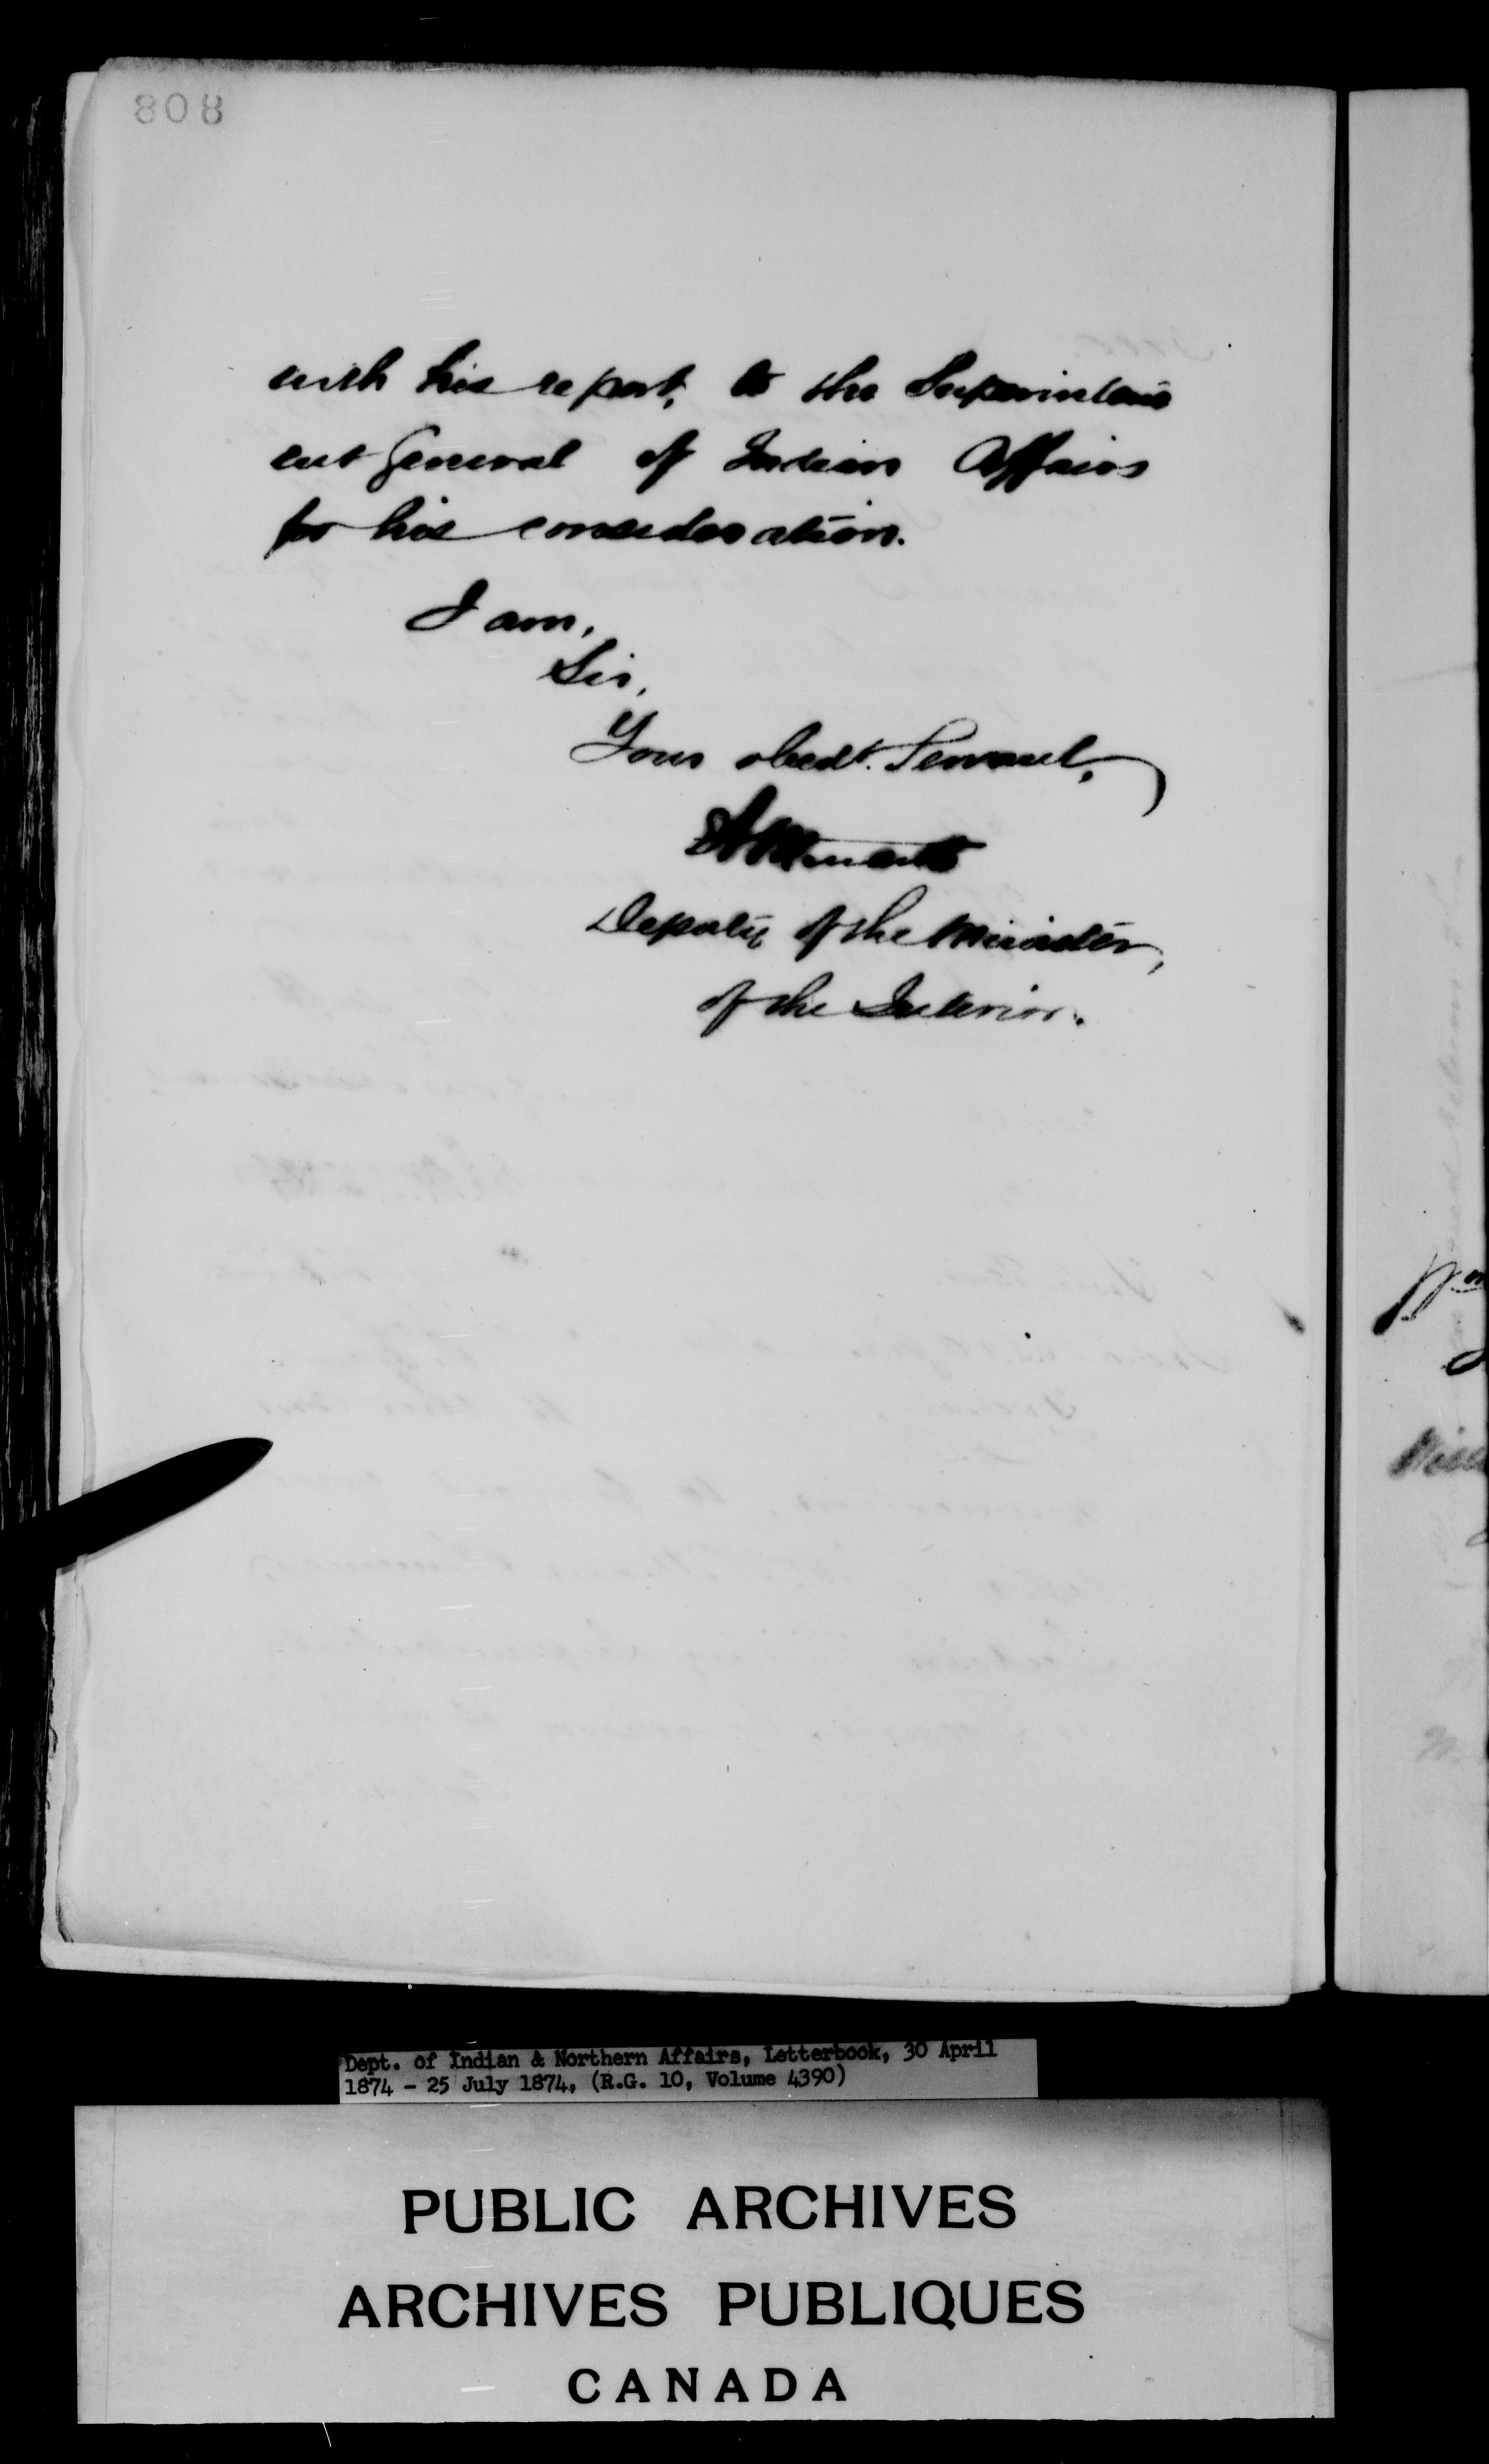 808
with his report, to the Superintend
ent General of Indian Affairs
for his consideration.
I am,
Sir,
Your obedt. Servant,
Deputy of the Minister,
of the Interior.
Dept. of Indian & Northern Affairs, Letterbook, 30 April
1874 - 25 July 1874, (R.G. 10, Volume 4390)
PUBLIC ARCHIVES
ARCHIVES PUBLIQUES
CANADA